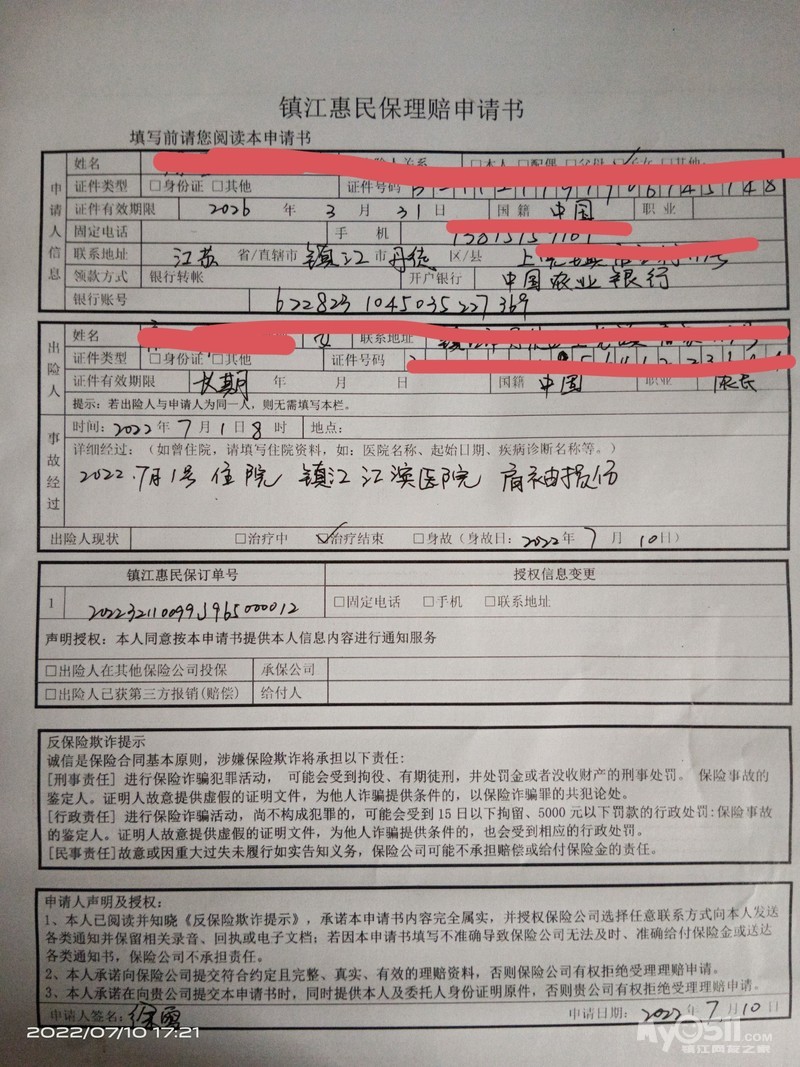 镇江惠民保理赔申请书
填写前请您阅读本申请书
申请人信息
姓名 险人关系 □本人 □配偶 □父母 □子女 □其他
证件类型 □身份证 □其他 证件号码
证件有效期限 2026 年 3 月 31 日 国籍 中国 职业
固定电话 手机
联系地址 江苏 省/直辖市 镇江 市 丹徒 区/县
领款方式 银行转帐 开户银行 中国农业银行
银行账号 6228231045035227369
出险人
姓名 女 联系地址
证件类型 □身份证 □其他 证件号码
证件有效期限 长期 年 月 日 国籍 中国 职业 农民
提示：若出险人与申请人为同一人，则无需填写本栏。
事故经过
时间：2022年 7 月 1 日 8 时 地点：
详细经过：（如曾住院，请填写住院资料，如：医院名称、起始日期、疾病诊断名称等。）
2022.7月1号 住院 镇江江滨医院 肩袖损伤
出险人现状 □治疗中 ☑治疗结束 □身故（身故日：2022年 7 月 10日）
镇江惠民保订单号 授权信息变更
1 □固定电话 □手机 □联系地址
声明授权：本人同意按本申请书提供本人信息内容进行通知服务
□出险人在其他保险公司投保 承保公司
□出险人已获第三方报销(赔偿) 给付人
反保险欺诈提示
诚信是保险合同基本原则，涉嫌保险欺诈将承担以下责任：
[刑事责任] 进行保险诈骗犯罪活动， 可能会受到拘役、有期徒刑，并处罚金或者没收财产的刑事处罚。 保险事故的
鉴定人。证明人故意提供虚假的证明文件，为他人诈骗提供条件的，以保险诈骗罪的共犯论处。
[行政责任] 进行保险诈骗活动，尚不构成犯罪的，可能会受到15日以下拘留、5000元以下罚款的行政处罚:保险事故
的鉴定人。证明人故意提供虚假的证明文件，为他人诈骗提供条件的，也会受到相应的行政处罚。
[民事责任]故意或因重大过失未履行如实告知义务，保险公司可能不承担赔偿或给付保险金的责任。
申请人声明及授权：
1、本人已阅读并知晓《反保险欺诈提示》，承诺本申请书内容完全属实，并授权保险公司选择任意联系方式向本人发送
各类通知并保留相关录音、回执或电子文档；若因本申请书填写不准确导致保险公司无法及时、准确给付保险金或送达
各类通知书，保险公司不承担责任。
2、本人承诺向保险公司提交符合约定且完整、真实、有效的理赔资料，否则保险公司有权拒绝受理理赔申请。
3、本人承诺在向贵公司提交本申请书时，同时提供本人及委托人身份证明原件，否则贵公司有权拒绝受理理赔申请。
申请人签名： 申请日期：2022年 7 月 10 日
2022/07/10 17:21
My0511.COM
镇江网友之家